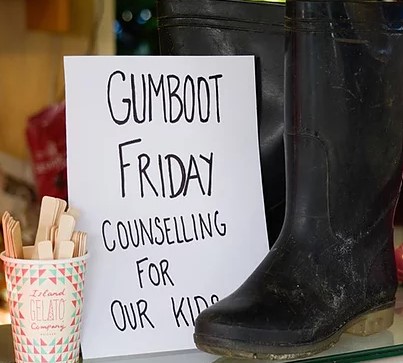 GUMBOOT
FRIDAY
COUNSELLING
FOR
OUR KIDS
Island
GELATO
Company